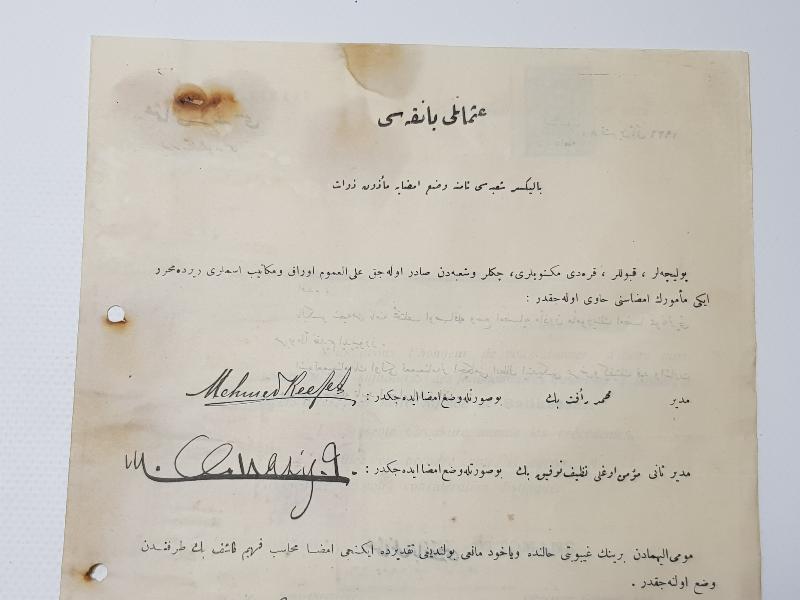 عثمانلی بانقه سی
بالیکسر شعبه سی نامنه وضع امضایه مأذون ذوات
پولیچه لر ، قبوللر ، قره دی مکتوبلری ، چکلر وشعبه دن صادر اوله جق علی العموم اوراق ومکاتیب اسملری زیرده محرر
ایکی مأمورك امضاسنی حاوی اوله جقدر :
مدیر محمد رأفت بك بوصورتله وضع امضا ایده جکدر : Mehmed Reefet
مدیر ثانی مؤمن اوغلی نظیف توفیق بك بوصورتله وضع امضا ایده جکدر : M.
مومی الیهمادن برینك غیبوبتی حالنده ویاخود مانعی بولندیغی تقدیرده ایکنجی امضا محاسب فهیم کاشف بك طرفندن
وضع اولنه جقدر .